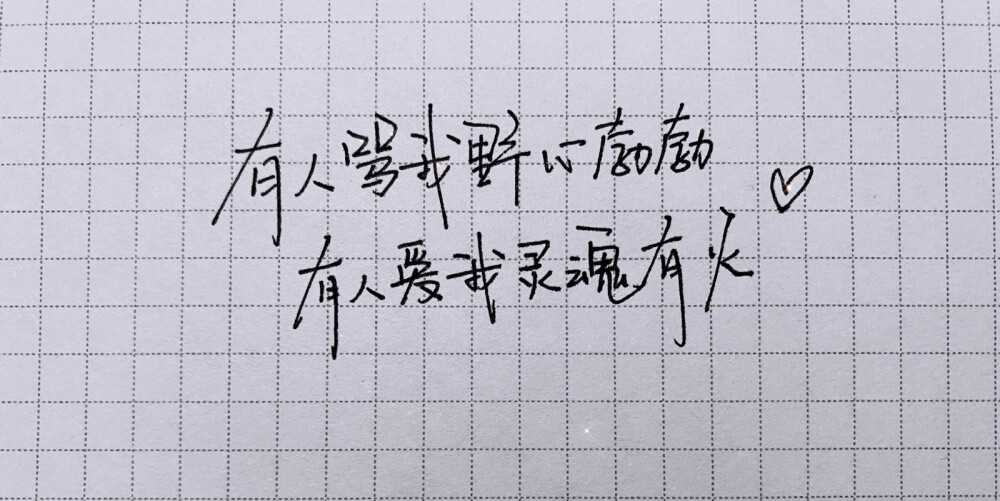 有人骂我野心勃勃
有人爱我灵魂有火